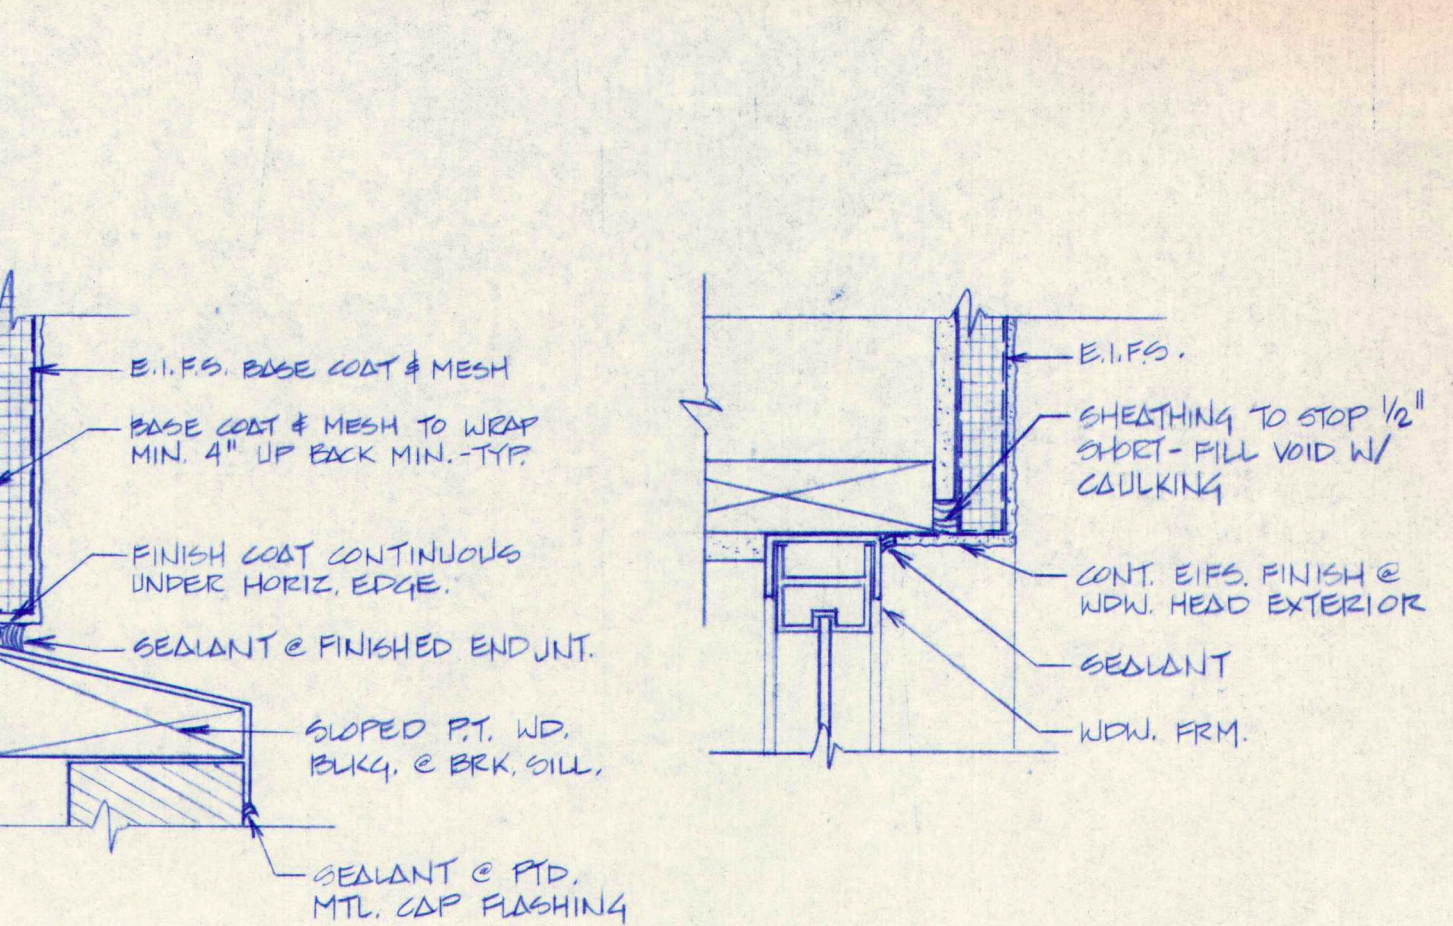 E.I.F.S. BASE COAT & MESH
BASE COAT & MESH TO WRAP
MIN. 4" UP BACK MIN.-TYP.
FINISH COAT CONTINUOUS
UNDER HORIZ. EDGE.
SEALANT @ FINISHED END JNT.
SLOPED P.T. WD.
BLKG. @ BRK. SILL.
SEALANT @ PTD.
MTL. CAP FLASHING
E.I.F.S.
SHEATHING TO STOP 1/2"
SHORT - FILL VOID W/
CAULKING
CONT. EIFS. FINISH @
WDW. HEAD EXTERIOR
SEALANT
WDW. FRM.